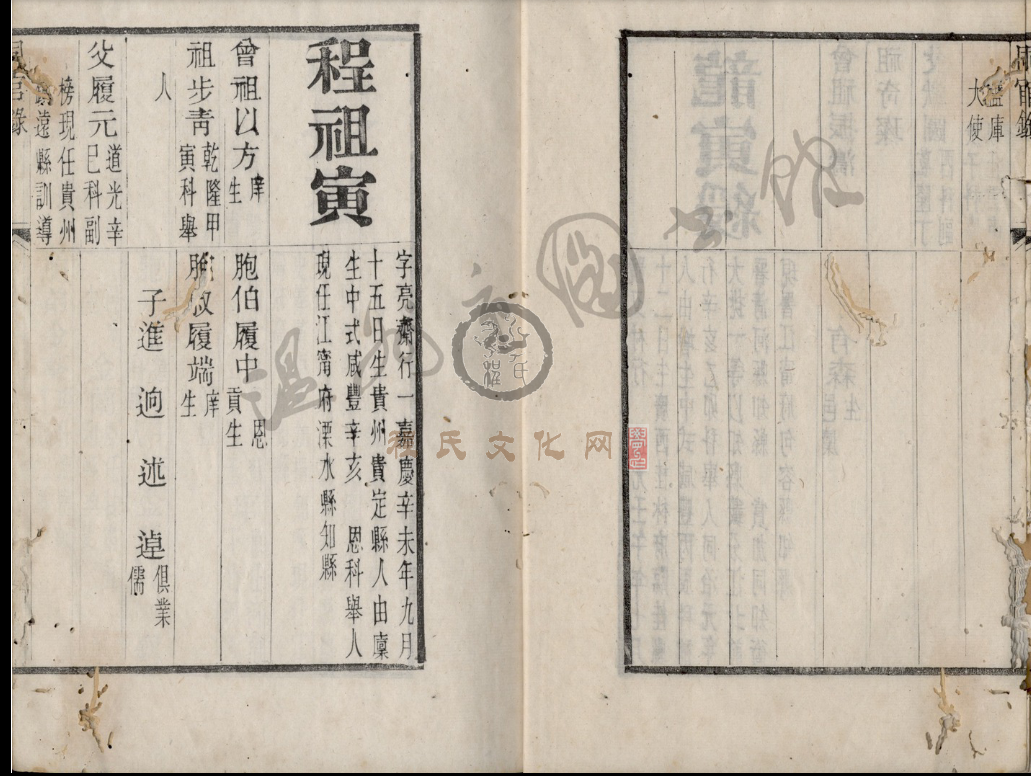 同官錄
庫
大使
程祖寅
曾祖以方 庠
生
祖步青 乾隆甲
寅科舉
人
父履元 道光辛
巳科副
榜現任貴州
遠縣訓導
字亮齋行一嘉慶辛未年九月
十五日生貴州貴定縣人由廩
生中式咸豐辛亥 恩科舉人
現任江甯府溧水縣知縣
胞伯履中 恩
貢生
胞叔履端 庠
生
子進 逈 述 逴 俱業
儒
同官錄
程氏文化网